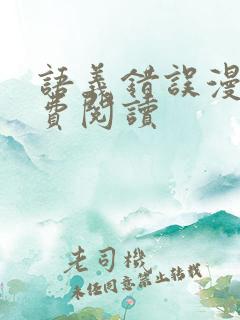 語義錯誤漫
費閱讀
老司機
未经同意禁止转载